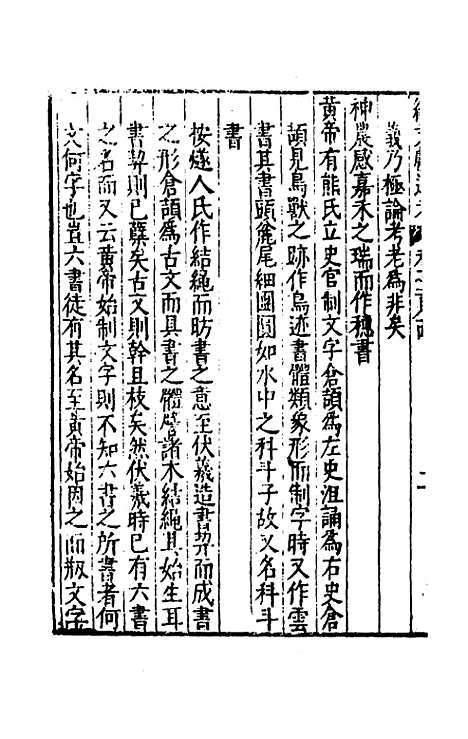 義乃極論考老爲非矣
神農感嘉禾之瑞而作穗書
黄帝有熊氏立史官制文字倉頡爲左史沮誦爲右史倉
頡見鳥獸之跡作鳥迹書體類象形而制字時又作雲
書其書頭麄尾細團圓如水中之科斗子故又名科斗
書
按燧人氏作結繩而昉書之意至伏羲造書契而成書
之形倉頡爲古文而具書之體譬諸木結繩其始生耳
書契則已蘖矣古文則幹且枝矣然伏羲時已有六書
之名而又云黄帝始制文字則不知六書之所書者何
文何字也豈六書徒有其名至黄帝始因之而剏文字